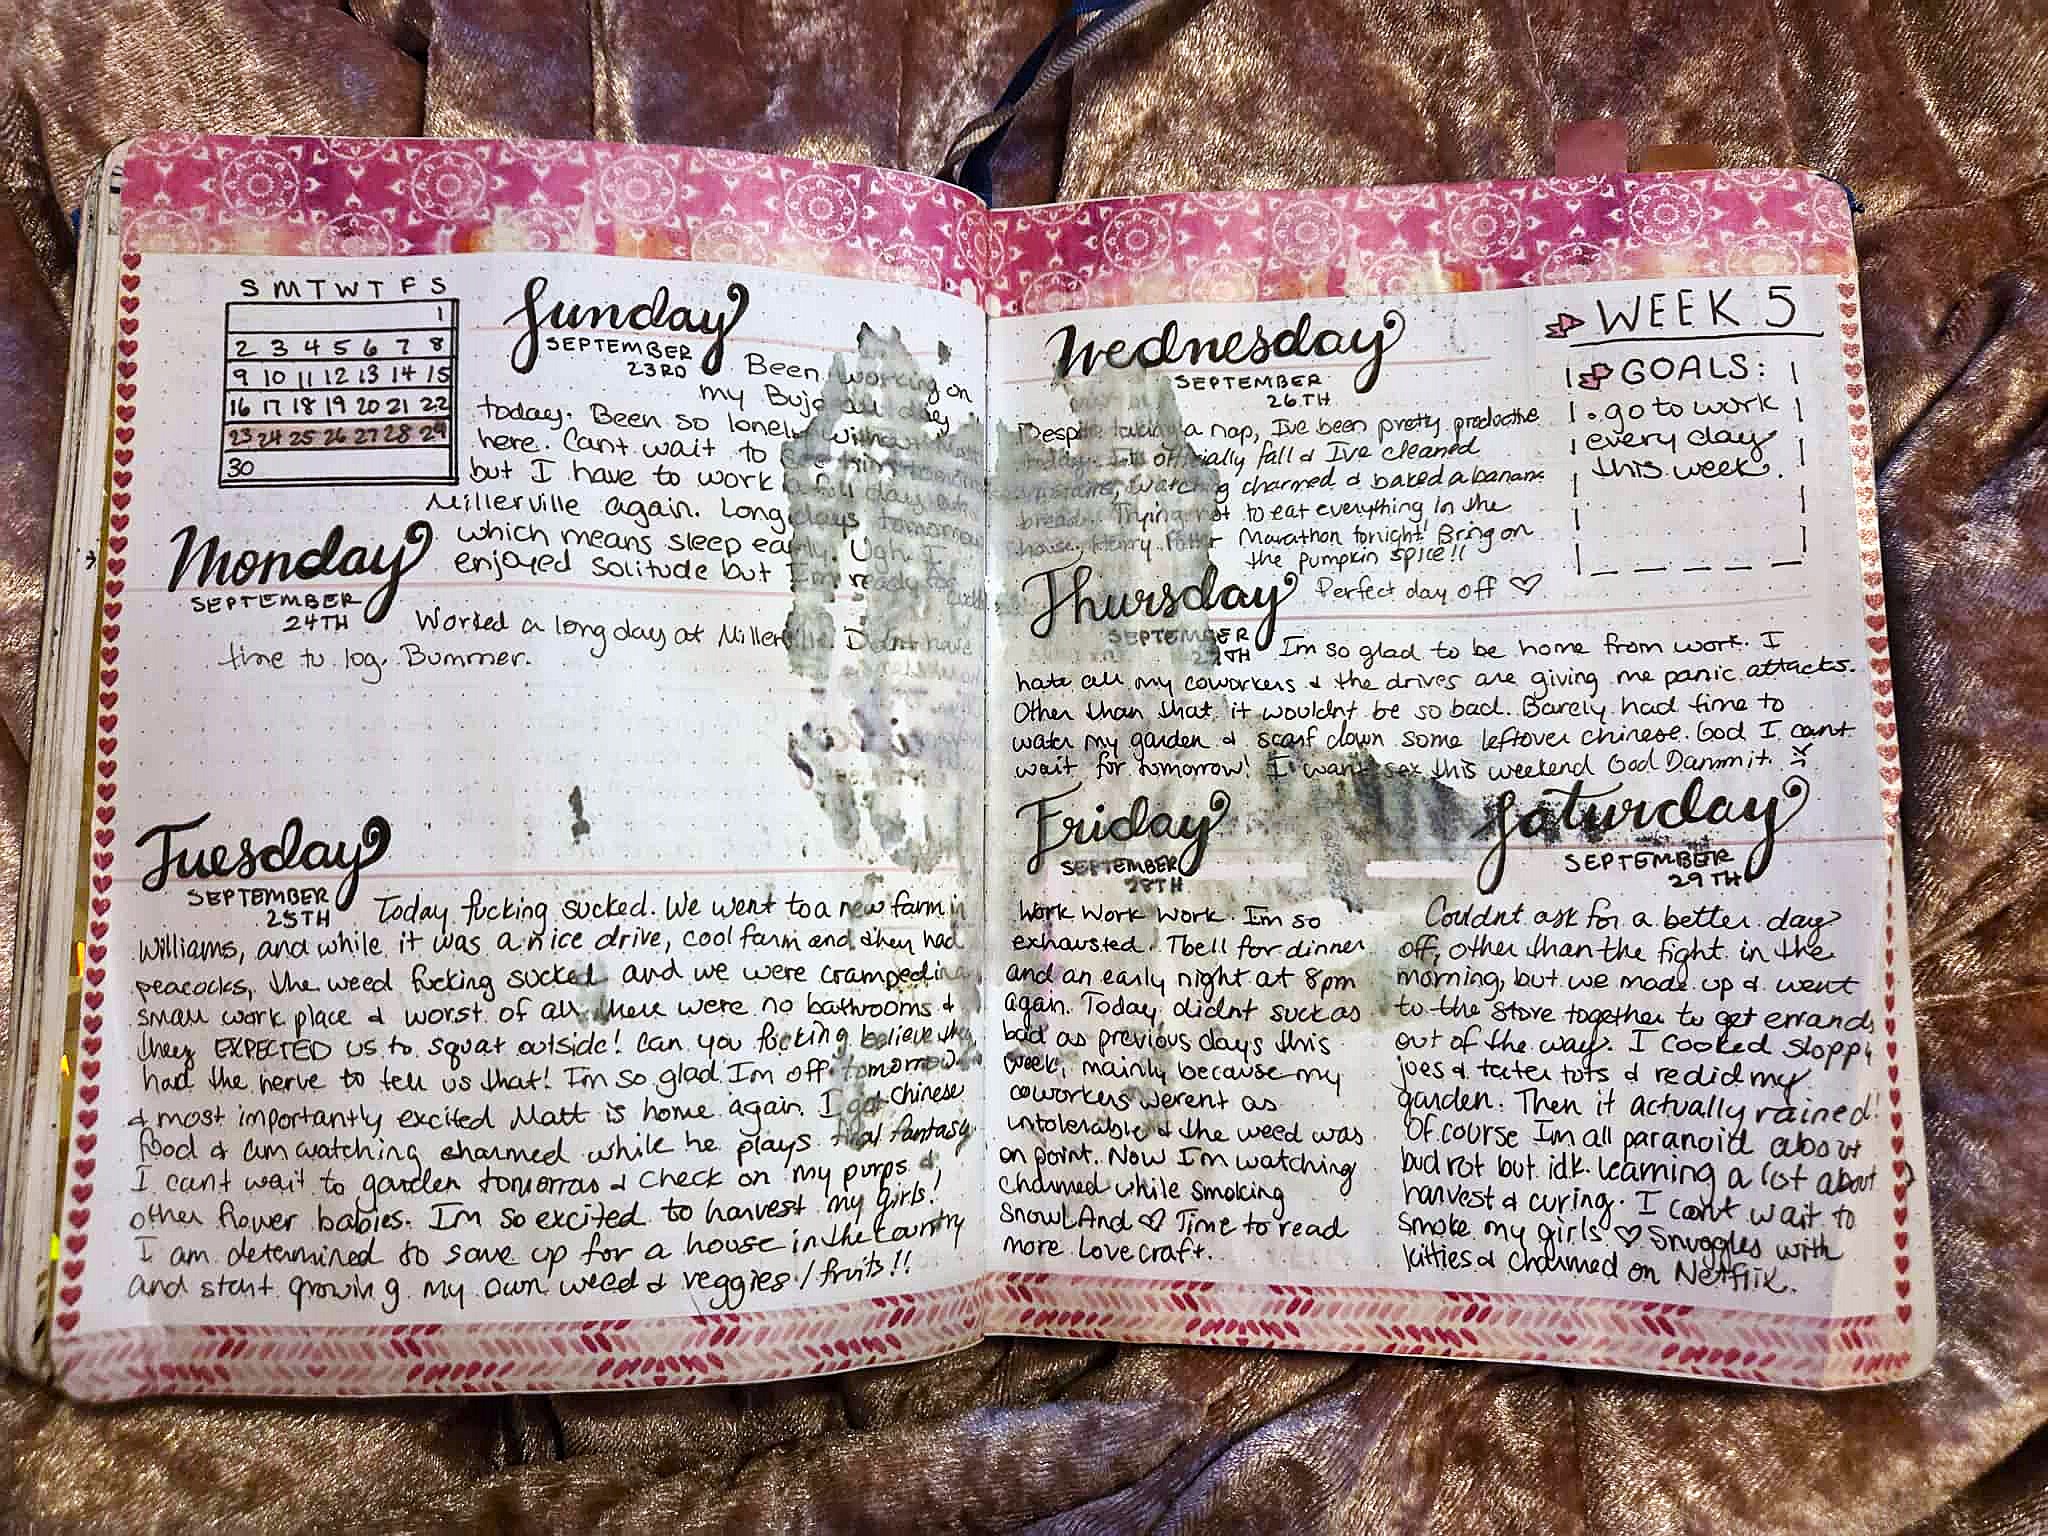 S M T W T F S
1
2 3 4 5 6 7 8
9 10 11 12 13 14 15
16 17 18 19 20 21 22
23 24 25 26 27 28 29
30
Sunday
SEPTEMBER
23RD
Been working on
my Bujo all day
today. Been so lonely without Matt
here. Cant wait to see him tomorrow
but I have to work a full day at
Millerville again. Long days tomorrow
which means sleep early. Ugh. I
enjoyed solitude but Im ready for
Monday
SEPTEMBER
24TH
Worked a long day at Millerville. Didnt have
time to log. Bummer.
Tuesday
SEPTEMBER
25TH
Today fucking sucked. We went to a new farm in
Williams, and while it was a nice drive, cool farm and they had
peacocks, the weed fucking sucked and we were cramped in a
small work place & worst of all there were no bathrooms &
they EXPECTED us to squat outside! Can you fucking believe they
had the nerve to tell us that! Im so glad Im off tomorrow
& most importantly excited Matt is home again. I got Chinese
food & am watching charmed while he plays final fantasy.
I cant wait to garden tomorrow & check on my purps &
other flower babies. Im so excited to harvest my girls!
I am determined to save up for a house in the Country
and start growing my own weed & veggies/fruits!!
Wednesday
SEPTEMBER
26TH
Despite taking a nap, Ive been pretty productive
today. Its officially fall & Ive cleaned
watching charmed & baked a banana
bread. Trying not to eat everything in the
house, Harry Potter Marathon tonight! Bring on
the pumpkin spice!!
Perfect day off ♡
WEEK 5
GOALS:
• go to work
every day
this week.
Thursday
SEPTEMBER
27TH
Im so glad to be home from work. I
hate all my coworkers & the drives are giving me panic attacks.
Other than that, it wouldnt be so bad. Barely had time to
water my garden & scarf down some leftover chinese. God I cant
wait for tomorrow! I want sex this weekend God Dammit.
Friday
SEPTEMBER
28TH
Work Work Work. Im so
exhausted. Tbell for dinner
and an early night at 8pm
again. Today didnt suck as
bad as previous days this
week, mainly because my
coworkers werent as
intolerable & the weed was
on point. Now Im watching
Charmed while smoking
SnowLAnd ♡ Time to read
more Lovecraft.
Saturday
SEPTEMBER
29TH
Couldnt ask for a better day
off, other than the fight in the
morning, but we made up & went
to the store together to get errands
out of the way. I cooked sloppy
joes & tater tots & redid my
garden. Then it actually rained!
Of course Im all paranoid about
budrot but idk. Learning a lot about
harvest & curing. I cant wait to
smoke my girls ♡ Snuggles with
kitties & Charmed on Netflix.